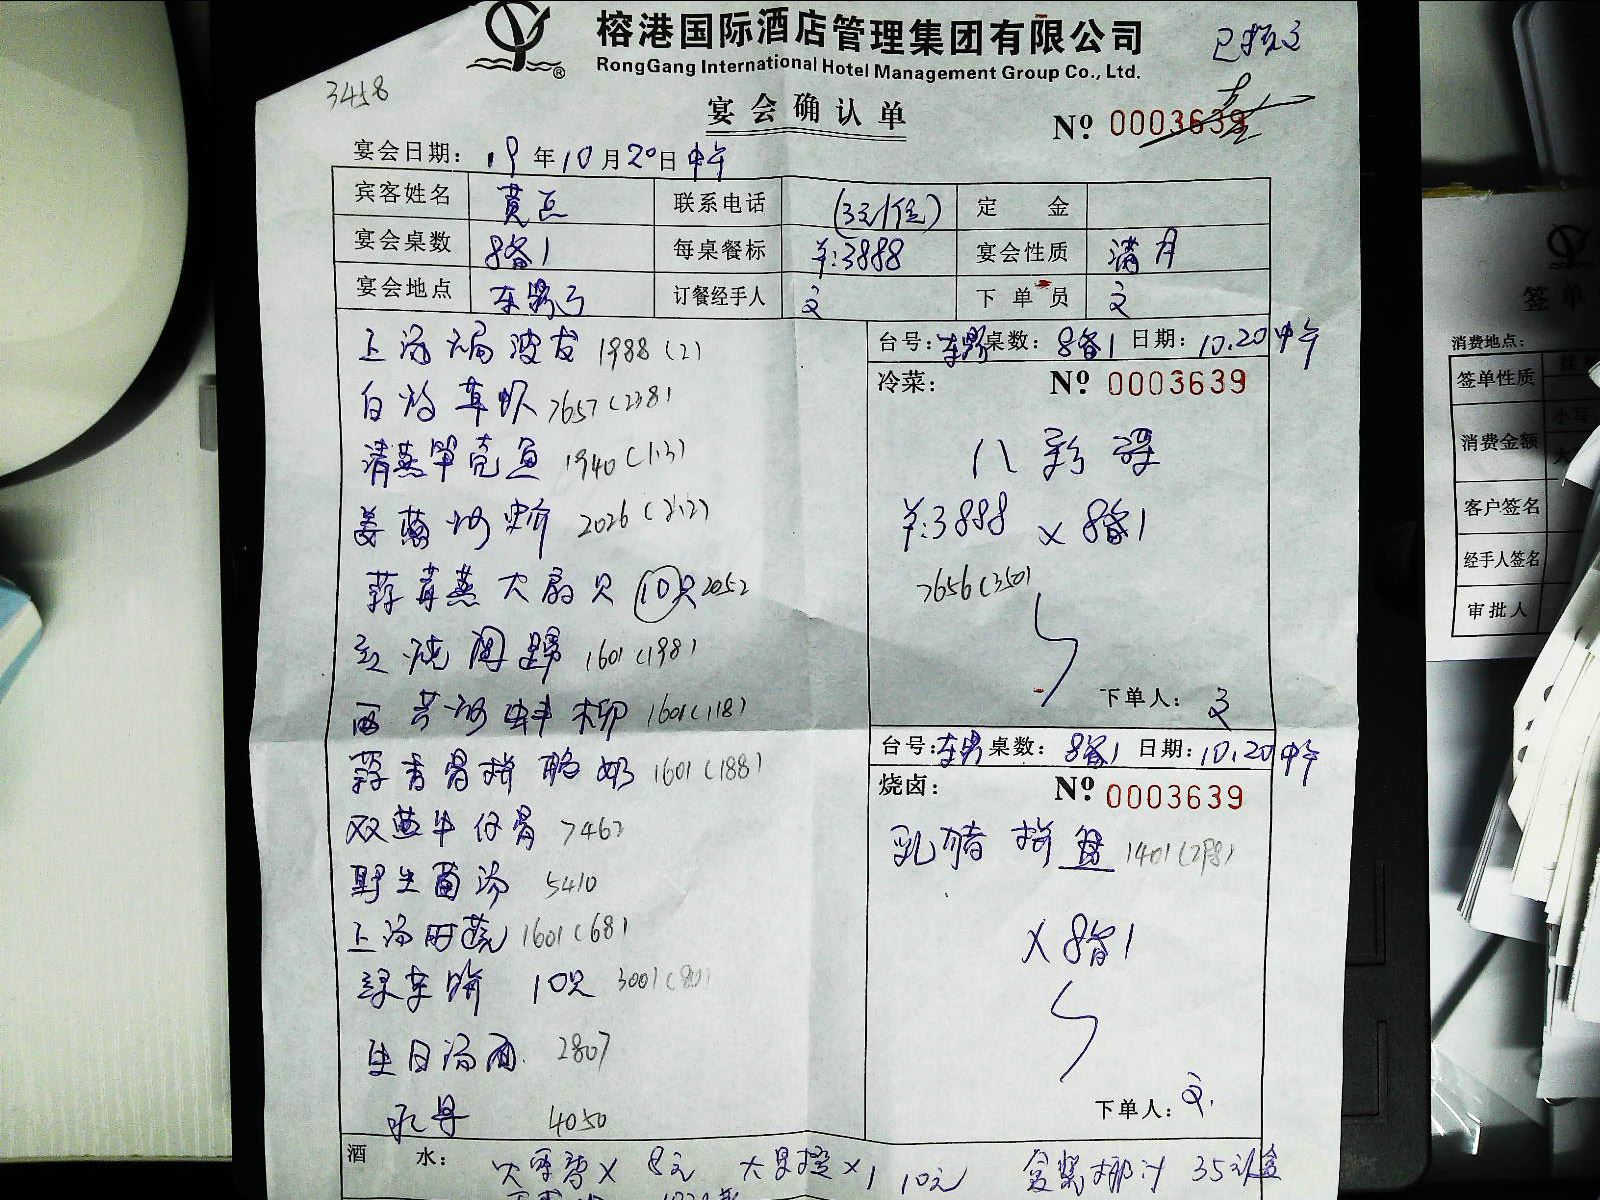 榕港国际酒店管理集团有限公司
RongGang International Hotel Management Group Co., Ltd.
3458
宴会确认单
№ 0003639
宴会日期： 19年10月20日中午
宾客姓名 黄 联系电话 定金
宴会桌数 8备1 每桌餐标 ¥:3888 宴会性质 满月
宴会地点 订餐经手人 文 下单员 文
上汤焗波龙 1988(2)
白灼草虾 7657(238)
清蒸笋壳鱼 1940(1.3)
姜葱炒 2026(2.2)
蒜茸蒸大扇贝 10只 2052
红烧圆蹄 1601(198)
西芹炒蚌柳 1601(118)
蒜香骨拼 奶 1601(188)
双 牛仔骨 7467
野生菌汤 5410
上汤时蔬 1601(68)
绿茶饼 10只 3001(80)
生日汤面 2807
水果 4050
台号： 桌数： 8备1 日期： 10.20中午
冷菜： № 0003639
八彩碟
¥:3888 × 8备1
7656(350)
下单人： 文
台号： 桌数： 8备1 日期： 10.20中午
烧卤： № 0003639
乳猪拼盘 1401(298)
× 8备1
下单人： 文
酒水： 大 × 8元 大果橙×1 10元 盒装椰汁 35元/盒
签单
消费地点：
签单性质 挂
消费金额 小写
大
客户签名
经手人签名
审批人